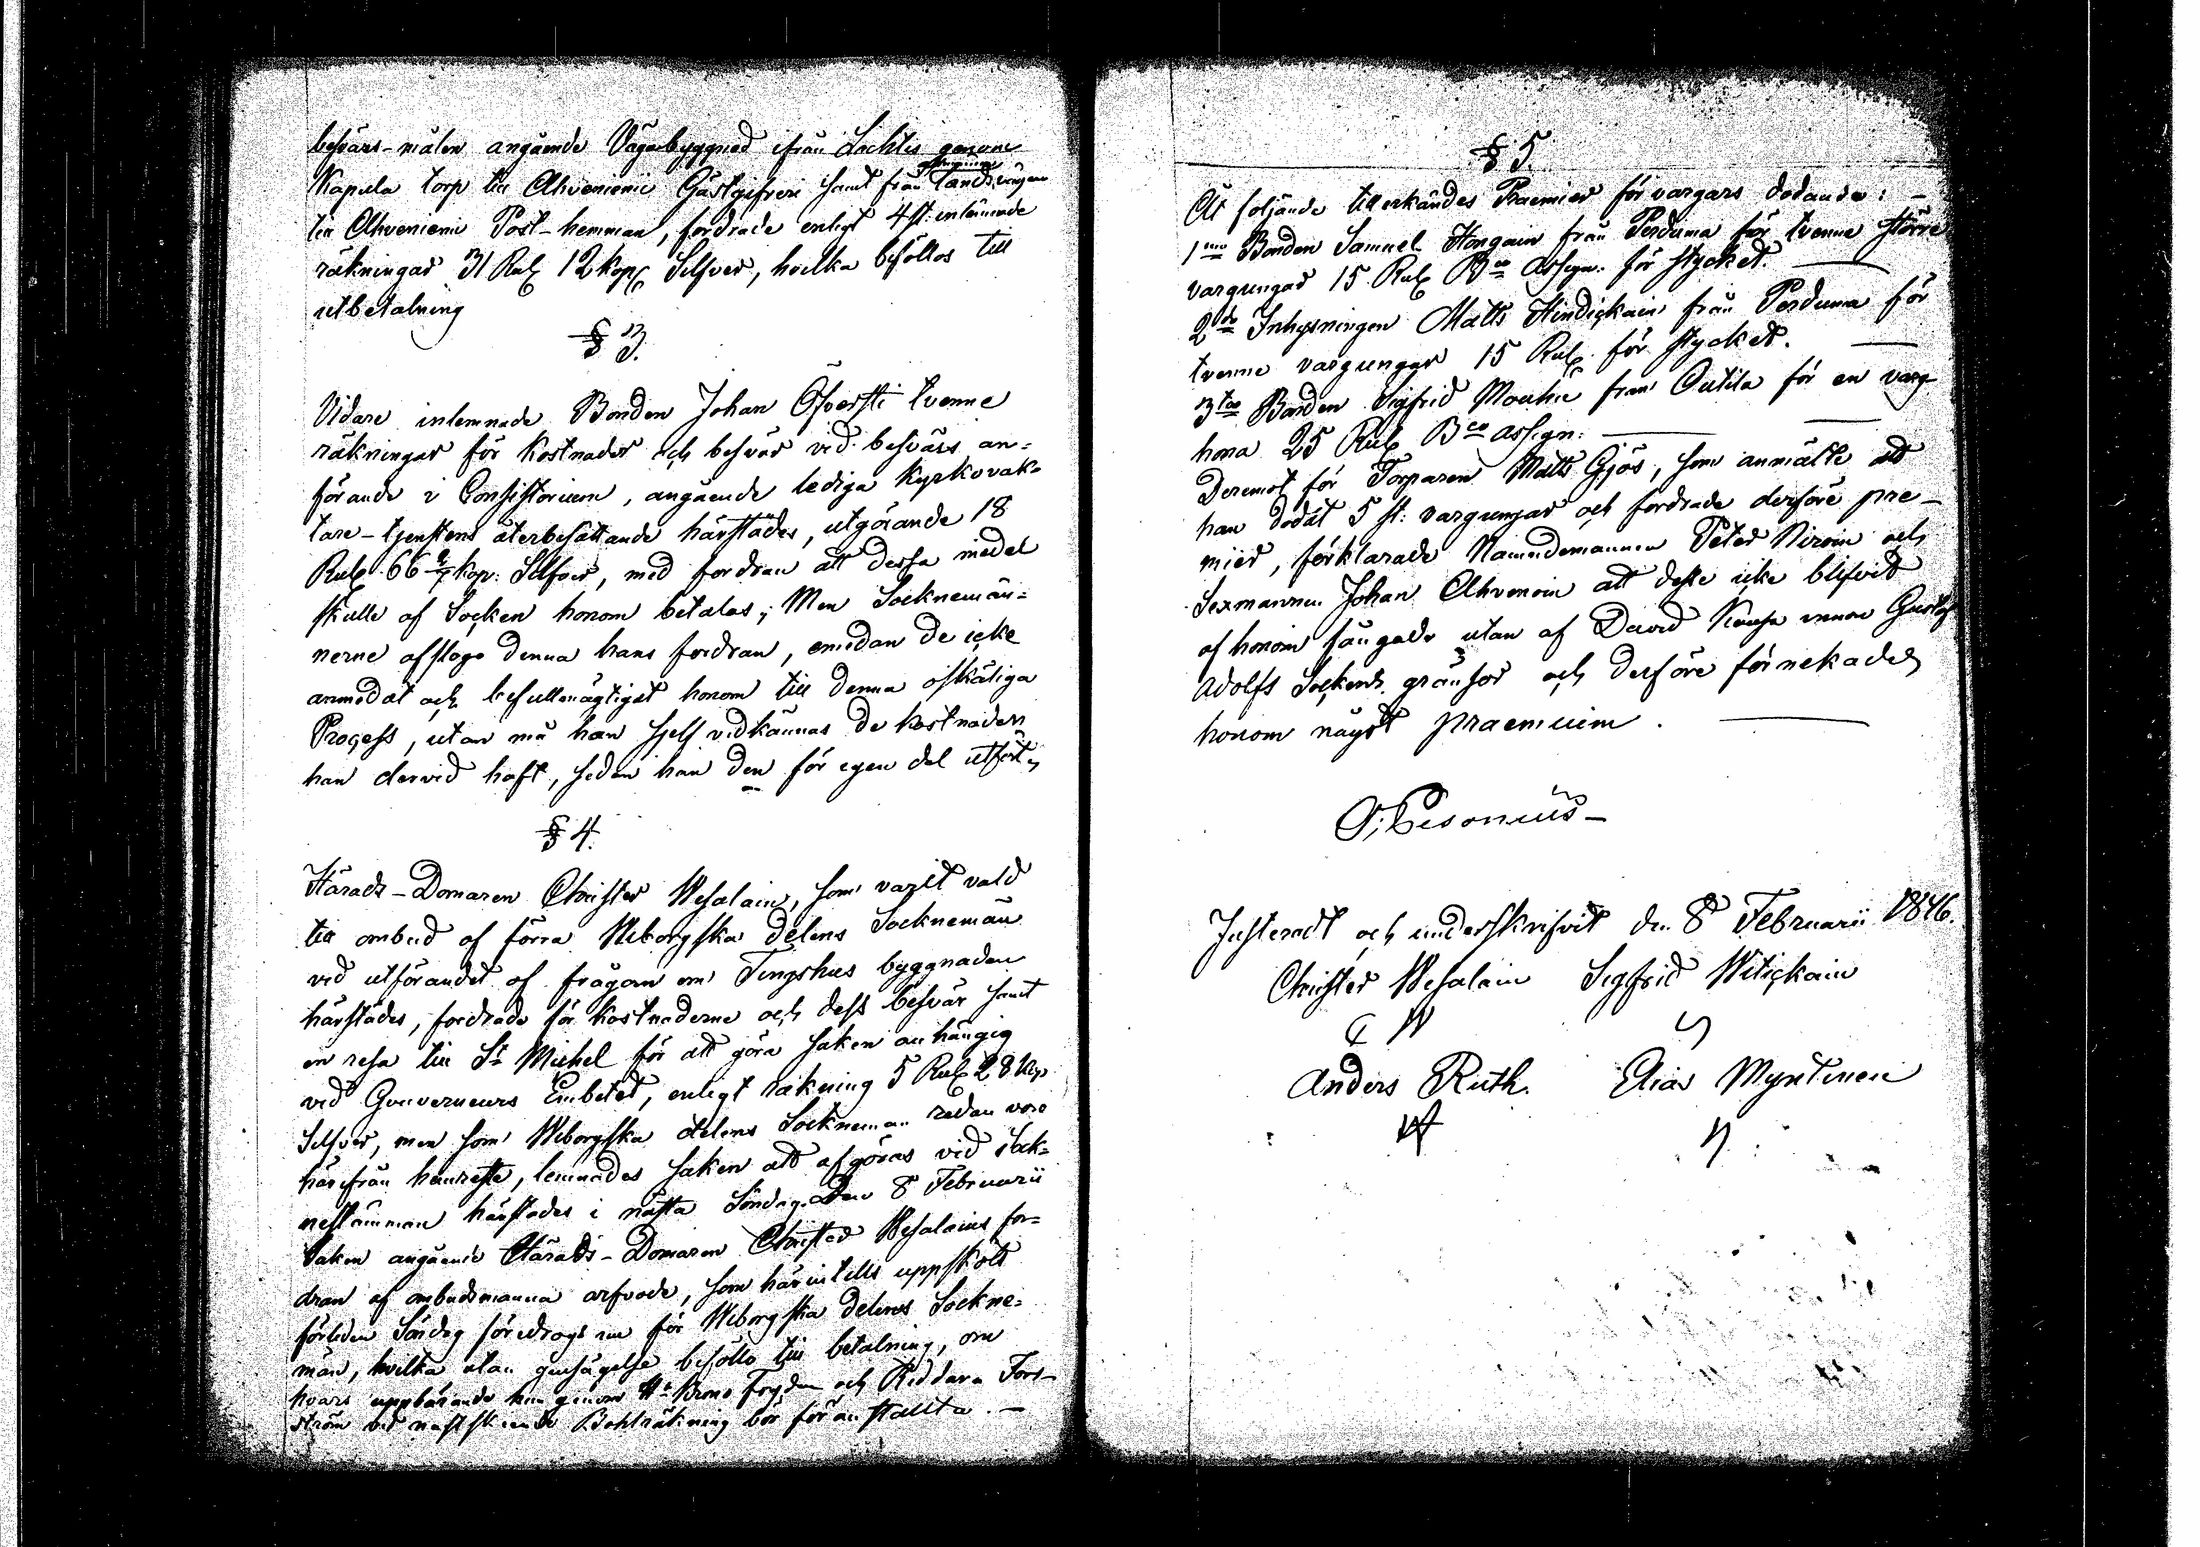 besvärs-målen angående Vägabyggnad ifrån Lachtis genom
Kapula torp till Ahvenieni Gästgifveri samt från landsvägen
till Ahvenieni Post-hemman, fordrade enligt 4 st: inlämnade
räkningar 31 Rub 12 kop Silfver, hvilka beföllos till
utbetalning
§ 3.
Vidare inlemnade Bonden Johan Öfversti tvenne
räkningar för kostnader och besvär vid besvärs an=
förande i Consistorium, angående lediga kyrkovak=
tare-tjenstens återbesättande härstädes, utgörande 18
Rub. 66 2/7 kop: Silfver, med fordran att dessa medel
skulle af Socken honom betalas; Men Socknemän=
nerne afslogo denna hans fordran, emedan de icke
anmodat och befullmägtigat honom till denna oskäliga
Process, utan må han sjelf vidkännas de kostnader
han dervid haft, sedan han den för egen del utfört,
§ 4.
Härads-Domaren Christer Wesalain, som varit vald
till ombud af förra Wiborgska delens Socknemän
vid utförandet af frågan om Tingshus byggnaden
härstädes, fordrade för kostnaderne och dess besvär samt
en resa till St Michel för att göra saken anhängig
vid Gouverneurs Embetet, enligt räkning 5 Rub 28 kop
Silfver, men som Wiborgska delens Socknemän redan voro
härifrån hemreste, lemnades saken att afgöras vid Sock=
nestämman härstädes i nästa Söndag. Den 8 Februarii
Saken angående Härads-Domaren Christer Wesalains for=
dran af ombudsmanna arfvode, som härintills uppsköts
förliden Söndag föredrogs nu för Wiborgska delens Sockne=
män, hvilka utan gensägelse beföllo till betalning, om
hvars uppbärande han genom Hr Krono Fogden och Riddaren Fors-
ström vid nästskeende Bohlräkning bör föranstallta. —
§ 5.
Åt följande tillerkändes Praemier för vargars dödande: —
1mo Bonden Samuel Hongain från Pertuma för tvenne större
vargungar 15 Rub Bco Assign: för stycket.
2do Inhysningen Matts Hindickain från Pertuma för
tvenne vargungar 15 Rub för stycket.
3tio Bonden Sigfrid Mouhu från Outila för en varg
hona 25 Rub Bco assign:
Deremot för Torparen Matts Gjös, som anmälte att
han dödat 5 st: vargungar och fordrade derföre pre-
mier, förklarade Nämndemannen Peter Niroin och
Sexmannen Johan Ahvenoin att desse icke blifvit
af honom fångade utan af David Kaupa innom Gustaf
Adolfs Sockens gränsor och derföre förnekades
honom något praemium.
O; Cesonius—
Justeradt och underskrifvit den 8 Februarii 1846.
Christer Wesalain Sigfrid Witickain
C W
Anders Ruth. Elias Myntinen